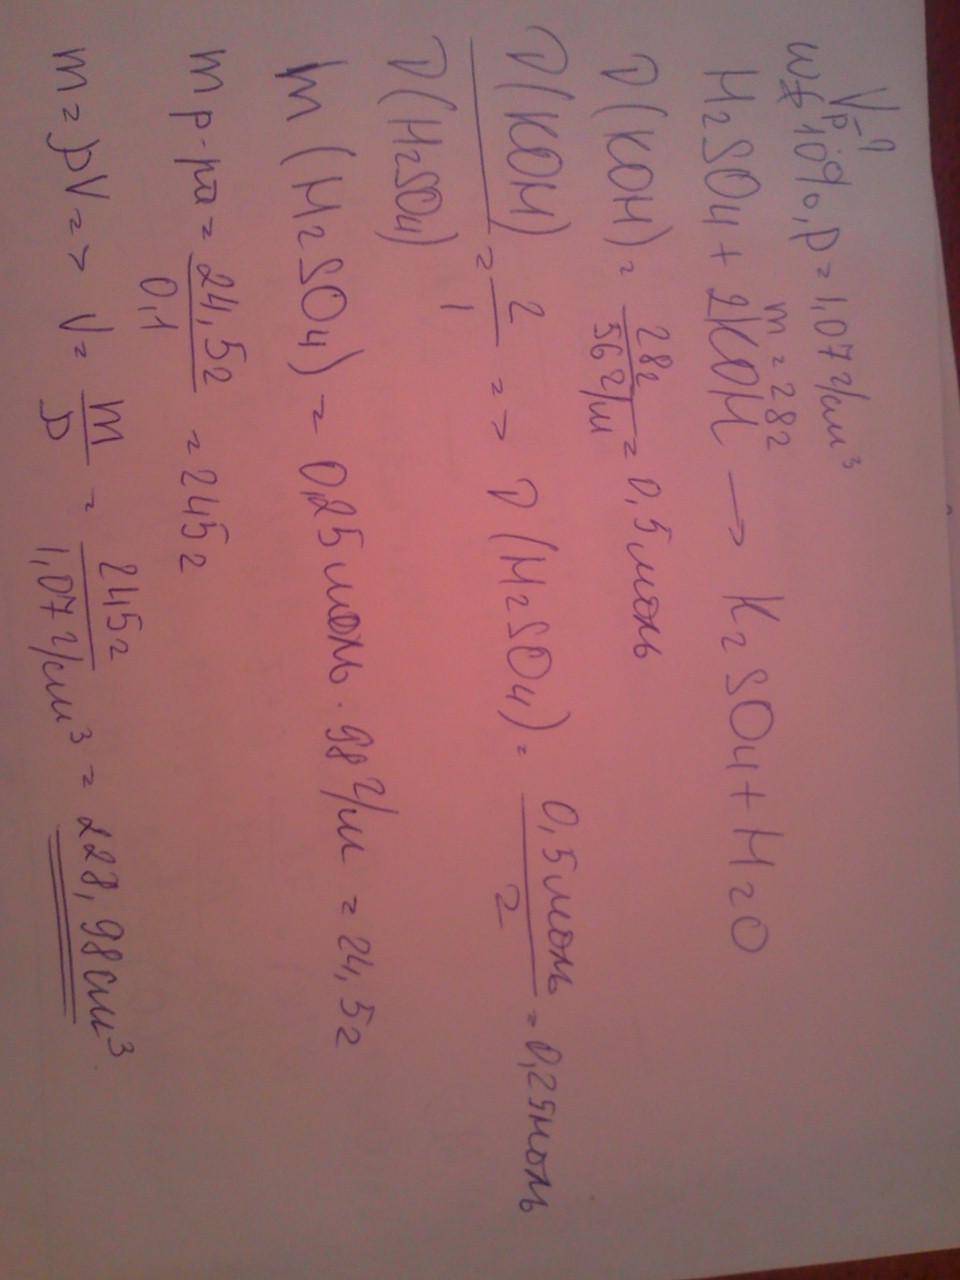 Vр-?
w=10%, ρ=1,07г/см³
m=28г
H₂SO₄+2KOH → K₂SO₄+H₂O
ν(KOH)=28г/56г/м=0,5моль
ν(KOH)/ν(H₂SO₄)=2/1 => ν(H₂SO₄)=0,5моль/2=0,25моль
m(H₂SO₄)=0,25моль·98г/м=24,5г
m р-ра=24,5г/0,1=245г
m=ρV=> V=m/ρ=245г/1,07г/см³=228,98см³